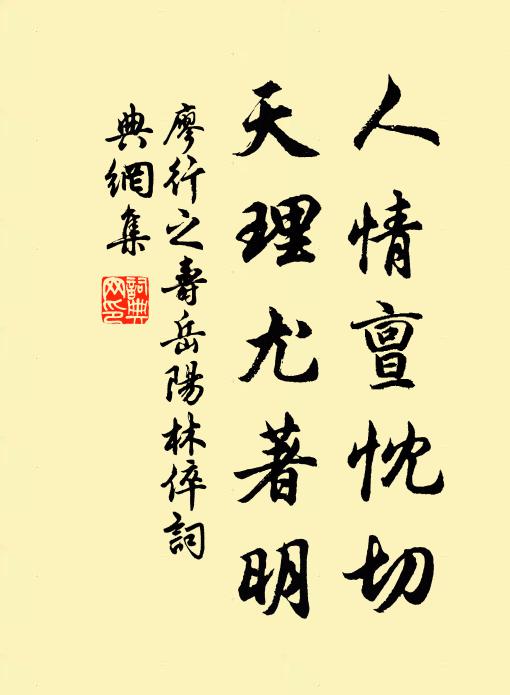 人情亶忱切
天理尤著明
廖行之壽岳陽林倅詞
典網集
詞典網印